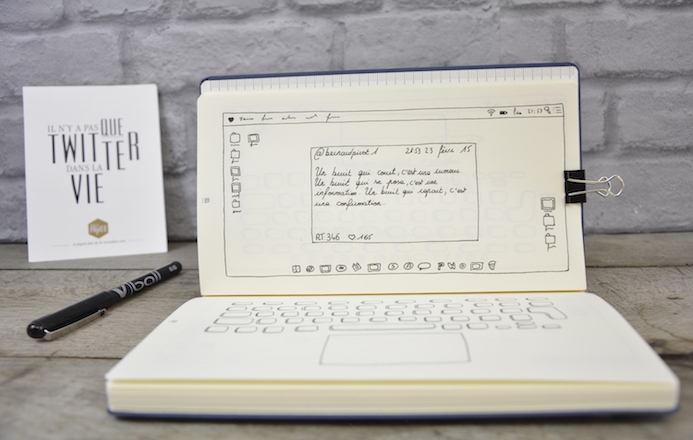 IL N'Y A PAS QUE
TWITTER
DANS LA
VIE
21:53
@bernardpivot1 21:53 23 févr. 15
Un bruit qui court, c'est une rumeur.
Un bruit qui se pose, c'est une
information. Un bruit qui repart, c'est
une confirmation.
RT 346 ♡ 165
V ball